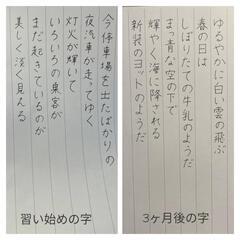 今停車場を出たばかりの
夜汽車が走ってゆく
灯火が輝いて
いろいろの乗客が
まだ起きているのが
美しく淡く見える
習い始めの字
ゆるやかに白い雲の飛ぶ
春の日は
しぼりたての牛乳のようだ
まっ青な空の下で
輝やく海に降される
新装のヨットのようだ
3ヶ月後の字